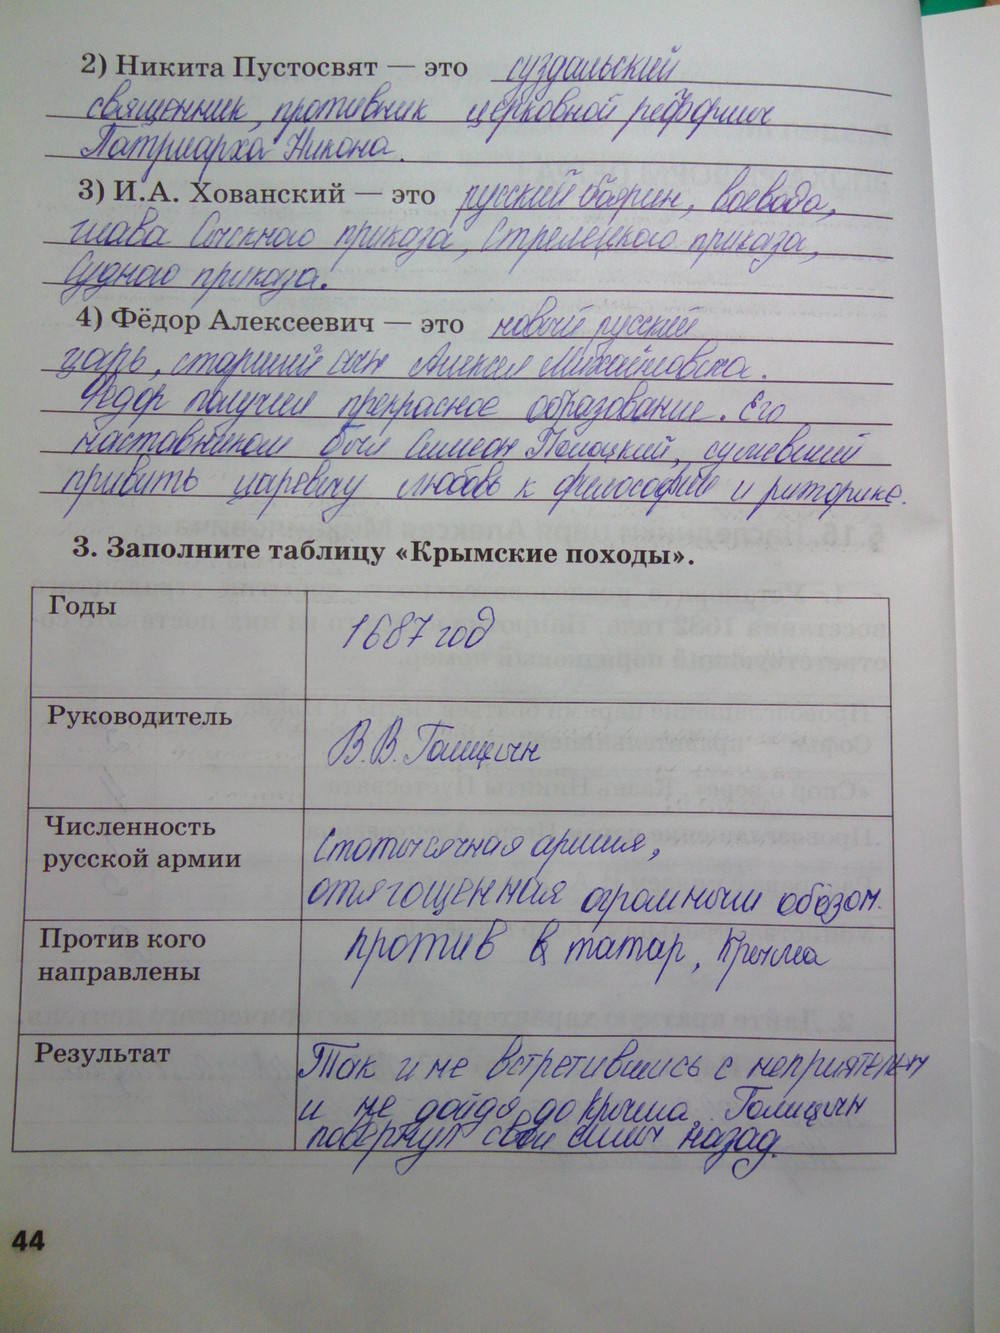 2) Никита Пустосвят — это суздальский
священник, противник церковной реформы
Патриарха Никона.
3) И.А. Хованский — это русский боярин, воевода,
глава Сыскного приказа, Стрелецкого приказа,
Судного приказа.
4) Фёдор Алексеевич — это новый русский
царь, старший сын Алексея Михайловича.
Федор получил прекрасное образование. Его
наставником был Симеон Полоцкий, сумевший
привить царевичу любовь к философии и риторике.
3. Заполните таблицу «Крымские походы».
Годы
1687 год
Руководитель
В.В. Голицын
Численность
русской армии
Стотысячная армия,
отягощенная огромным обозом.
Против кого
направлены
против татар, Крыма
Результат
Так и не встретившись с неприятелем
и не дойдя до Крыма, Голицын
повернул свои силы назад.
44